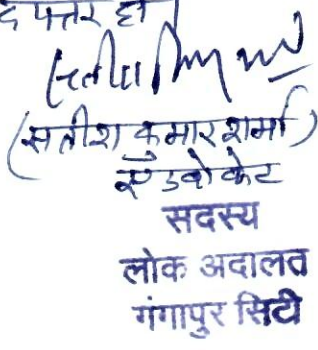 द फ्तर हो
(सतीश कुमार शर्मा)
एडवोकेट
सदस्य
लोक अदालत
गंगापुर सिटी